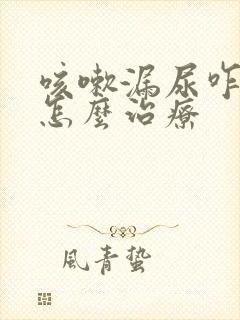 咳嗽漏尿咋
怎麼治療
風青蟄